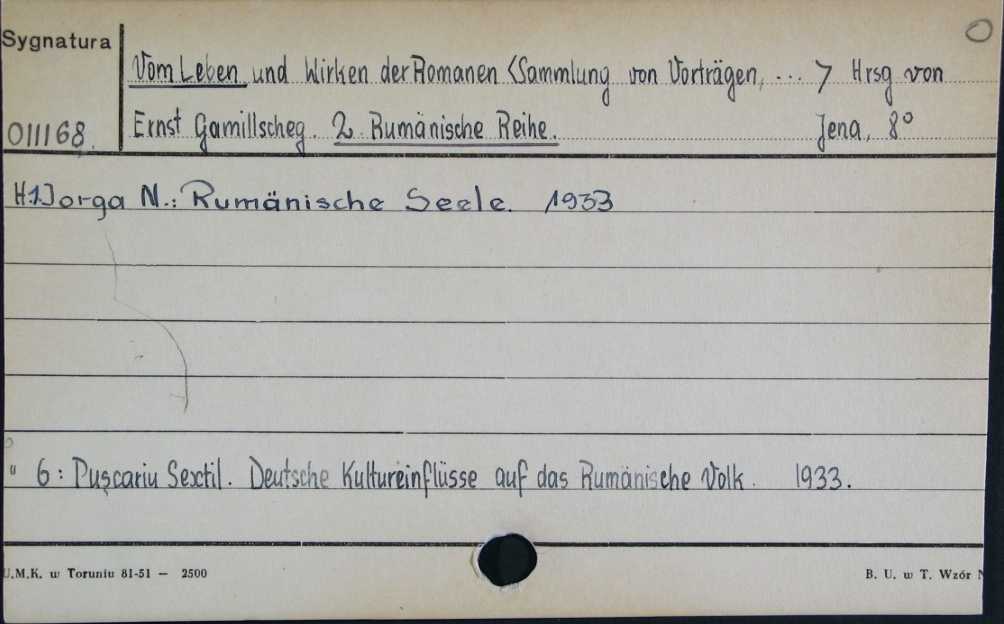 Sygnatura
Vom Leben und Wirken der Romanen <Sammlung von Vorträgen, ... > Hrsg von
011168. Ernst Gamillscheg. 2. Rumänische Reihe. Jena, 8°
H.1 Jorga N.: Rumänische Seele. 1933
" 6: Pușcariu Sextil. Deutsche Kultureinflüsse auf das Rumänische Volk. 1933.
U.M.K. w Toruniu 81-51 — 2500 B. U. w T. Wzór